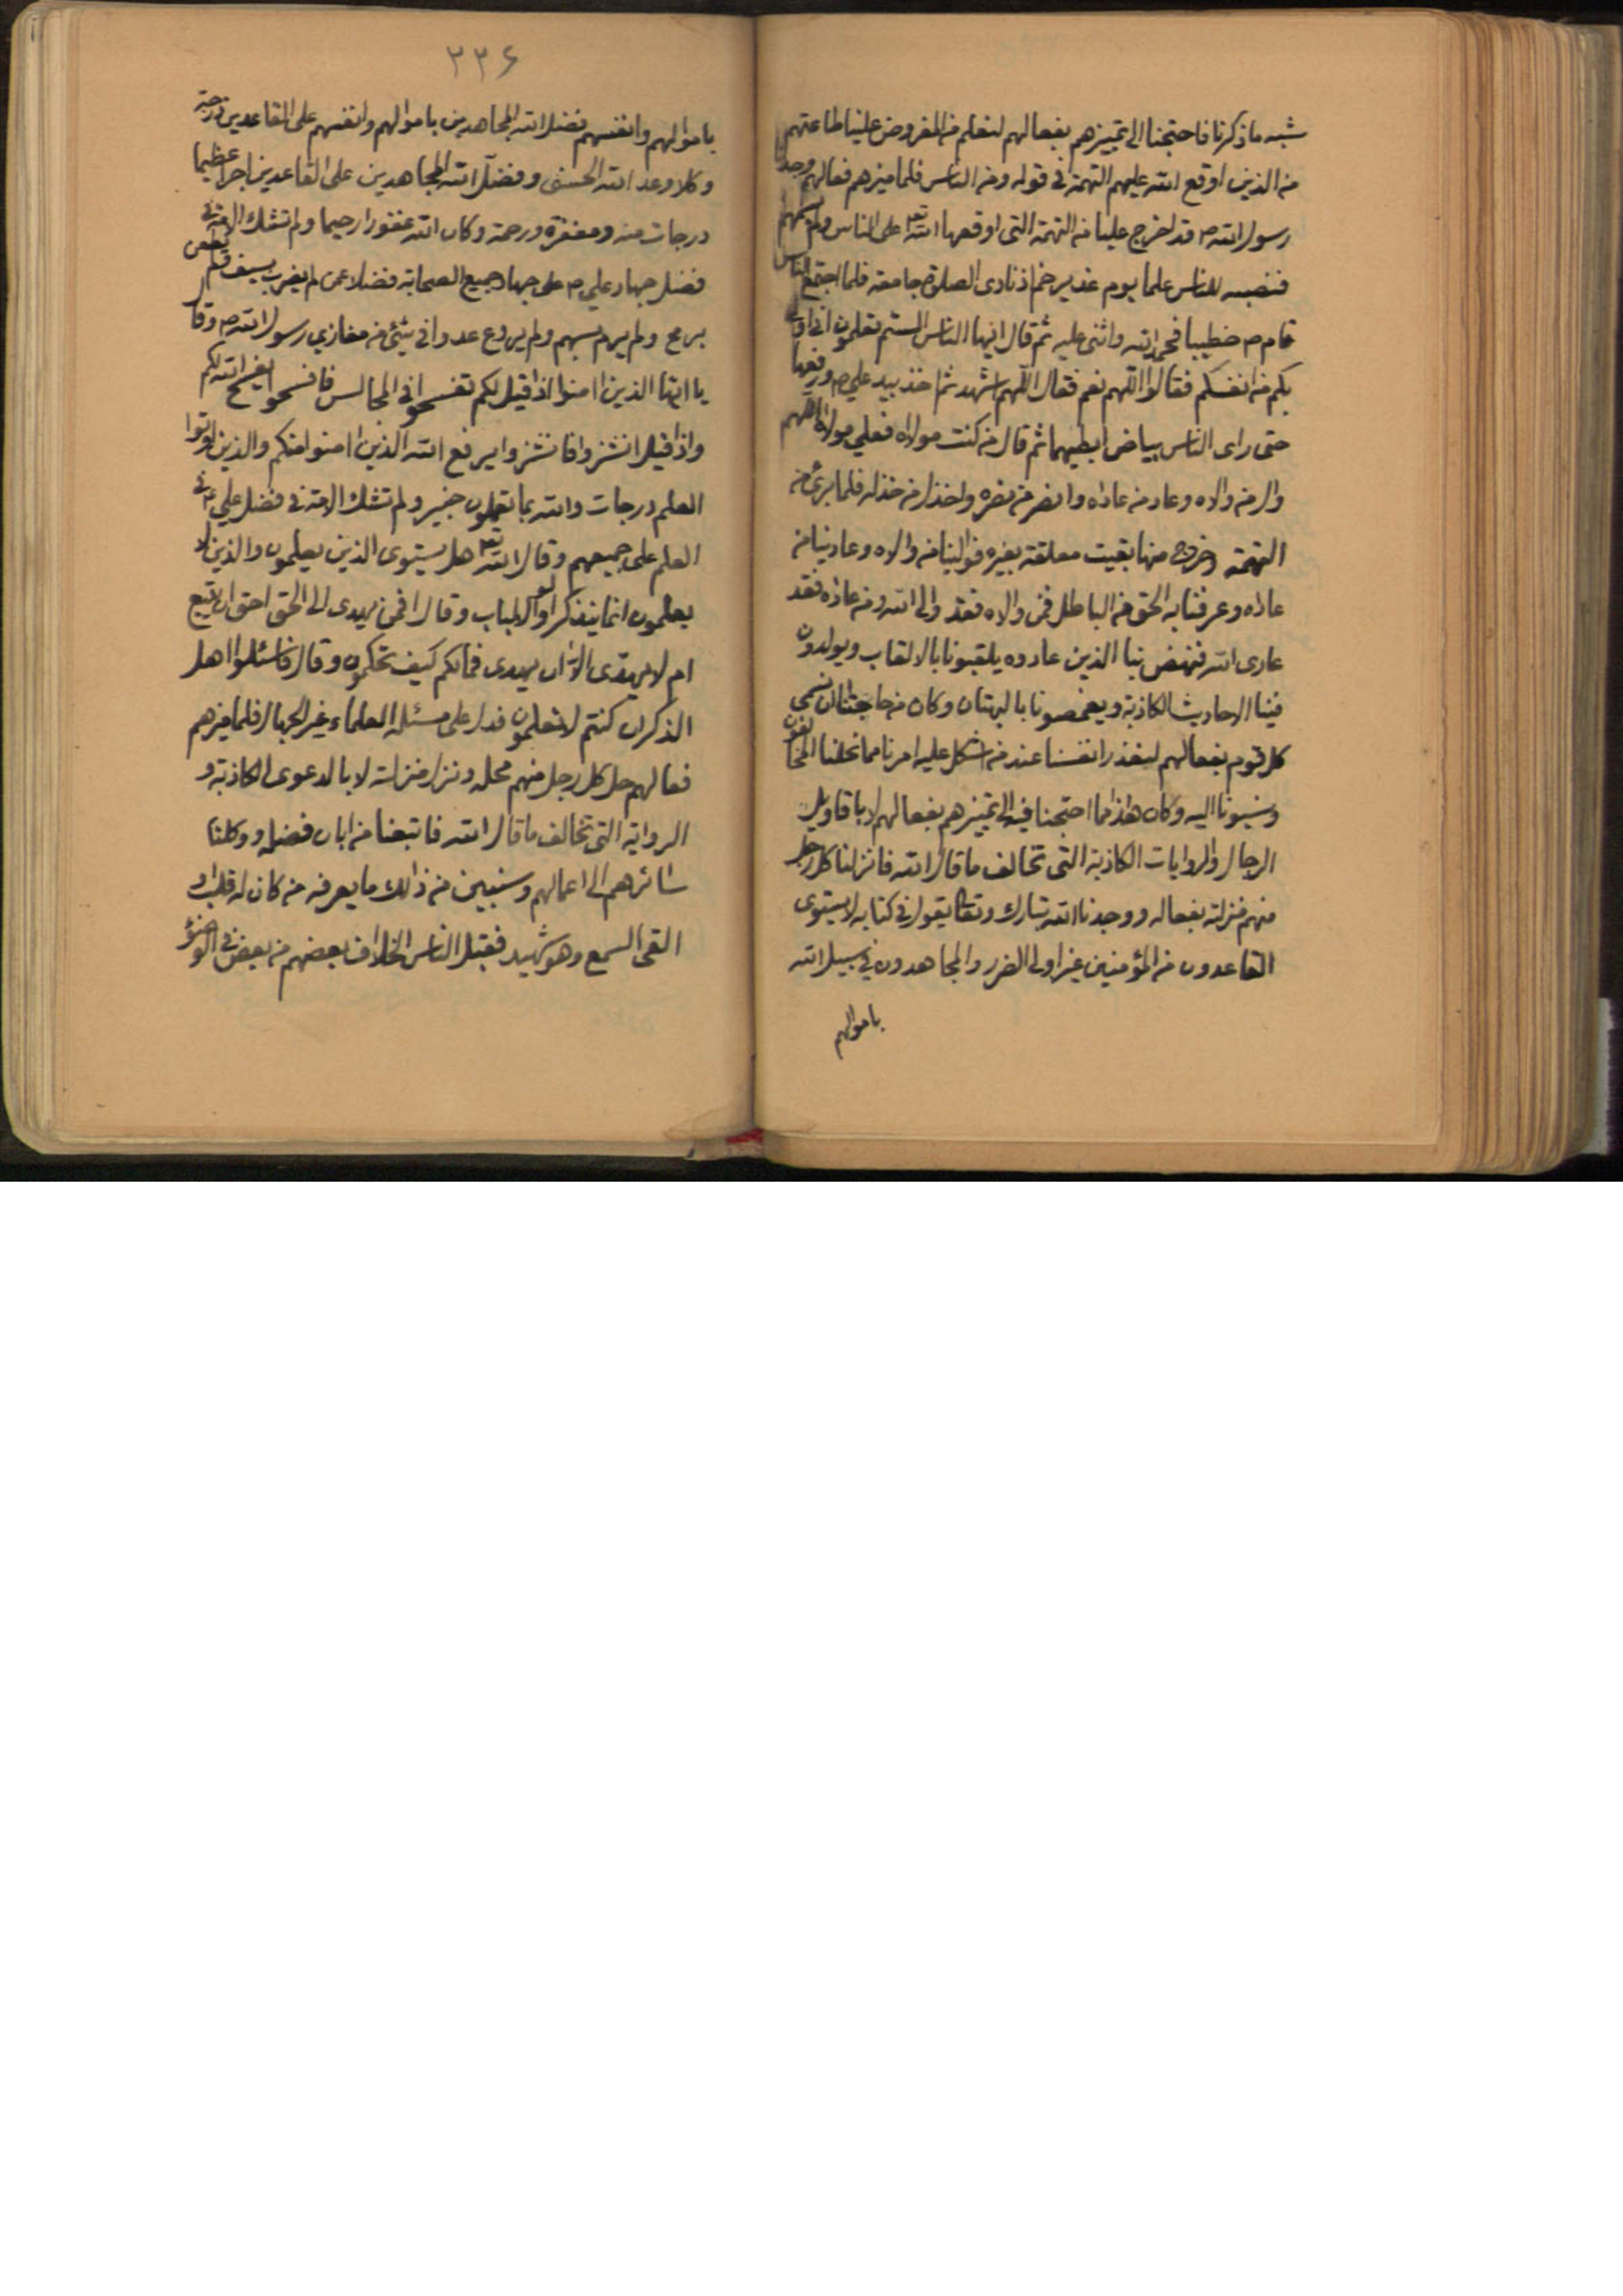 شبه ما ذكرنا فاحتجنا الى تمييزهم بفعالهم لنعلم من المفروض علينا طاعتهم
من الذين اوقع الله عليهم التهمة في قوله ومن الناس فلما ميزهم فعالهم وجدنا
رسول الله ص قد اخرج عليا من التهمة التي اوقعها الله تع على الناس ولم
فنصبه للناس علما يوم غدير خم اذ نادى الصلوة جامعة فلما اجتمع الناس
قام ص خطيبا فحمد الله واثنى عليه ثم قال ايها الناس الستم تعلمون اني اولى
بكم من انفسكم فقالوا اللهم نعم فقال اللهم اشهد ثم اخذ بيد علي م ورفعها
حتى راى الناس بياض ابطيهما ثم قال من كنت مولاه فعلي مولاه اللهم
وال من والاه وعاد من عاداه وانصر من نصره واخذل من خذله فلما برئ من
التهمة وخرج منها بقيت معلقة بغيره فوالينا من والاه وعادينا من
عاداه وعرفنا به الحق من الباطل فمن والاه فقد والى الله ومن عاداه فقد
عادى الله فنهض بنا الذين عادوه يلقبونا بالالقاب ويولدون
فينا الاحاديث الكاذبة ويغمصونا بالبهتان وكان من حاجتنا ان نسمي
كل قوم بفعالهم لنعذر انفسنا عند من اشكل عليه امرنا مما نحلنا المخالفون
ونسبونا اليه وكان هذا مما احتجنا فيه الى تمييزهم بفعالهم لا باقاويل
الرجال والروايات الكاذبة التي تخالف ما قال الله فانزلنا كل رجل
منهم منزلته بفعاله ووجدنا الله تبارك وتعالى يقول في كتابه لا يستوى
القاعدون من المؤمنين غير اولى الضرر والمجاهدون في سبيل الله
باموالهم
٣٣٦
باموالهم وانفسهم فضل الله المجاهدين باموالهم وانفسهم على القاعدين درجة
وكلا وعد الله الحسنى وفضل الله المجاهدين على القاعدين اجرا عظيما
درجات منه ومغفرة ورحمة وكان الله غفورا رحيما ولم تشك الامة في
فضل جهاد علي م على جهاد جميع الصحابة فضلا عمن لم يضرب بسيف ولم يطعن
برمح ولم يرم بسهم ولم يروع عدوا في شئ من مغازي رسول الله ص وقال
يا ايها الذين امنوا اذا قيل لكم تفسحوا في المجالس فافسحوا يفسح الله لكم
واذا قيل انشزوا فانشزوا يرفع الله الذين امنوا منكم والذين اوتوا
العلم درجات والله بما تعملون خبير ولم تشك الامة في فضل علي م في
العلم على جميعهم وقال الله تع هل يستوى الذين يعلمون والذين لا
يعلمون انما يتذكر اولو الالباب وقال افمن يهدى الى الحق احق ان يتبع
ام لا يهدى الا ان يهدى فما لكم كيف تحكمون وقال فاسئلوا اهل
الذكر ان كنتم لا تعلمون فدل على مسئلة العلماء غير الجهال فلما ميزهم
فعالهم حل كل رجل منهم محله ونزل منزلته لا بالدعوى الكاذبة و
الرواية التي تخالف ما قال الله فاتبعنا من ابان فضله ووكلنا
سائرهم الى اعمالهم وسنبين من ذالك ما يعرفه من كان له قلب او
القى السمع وهو شهيد فقبل الناس اختلاف بعضهم من بعض في الوضوء